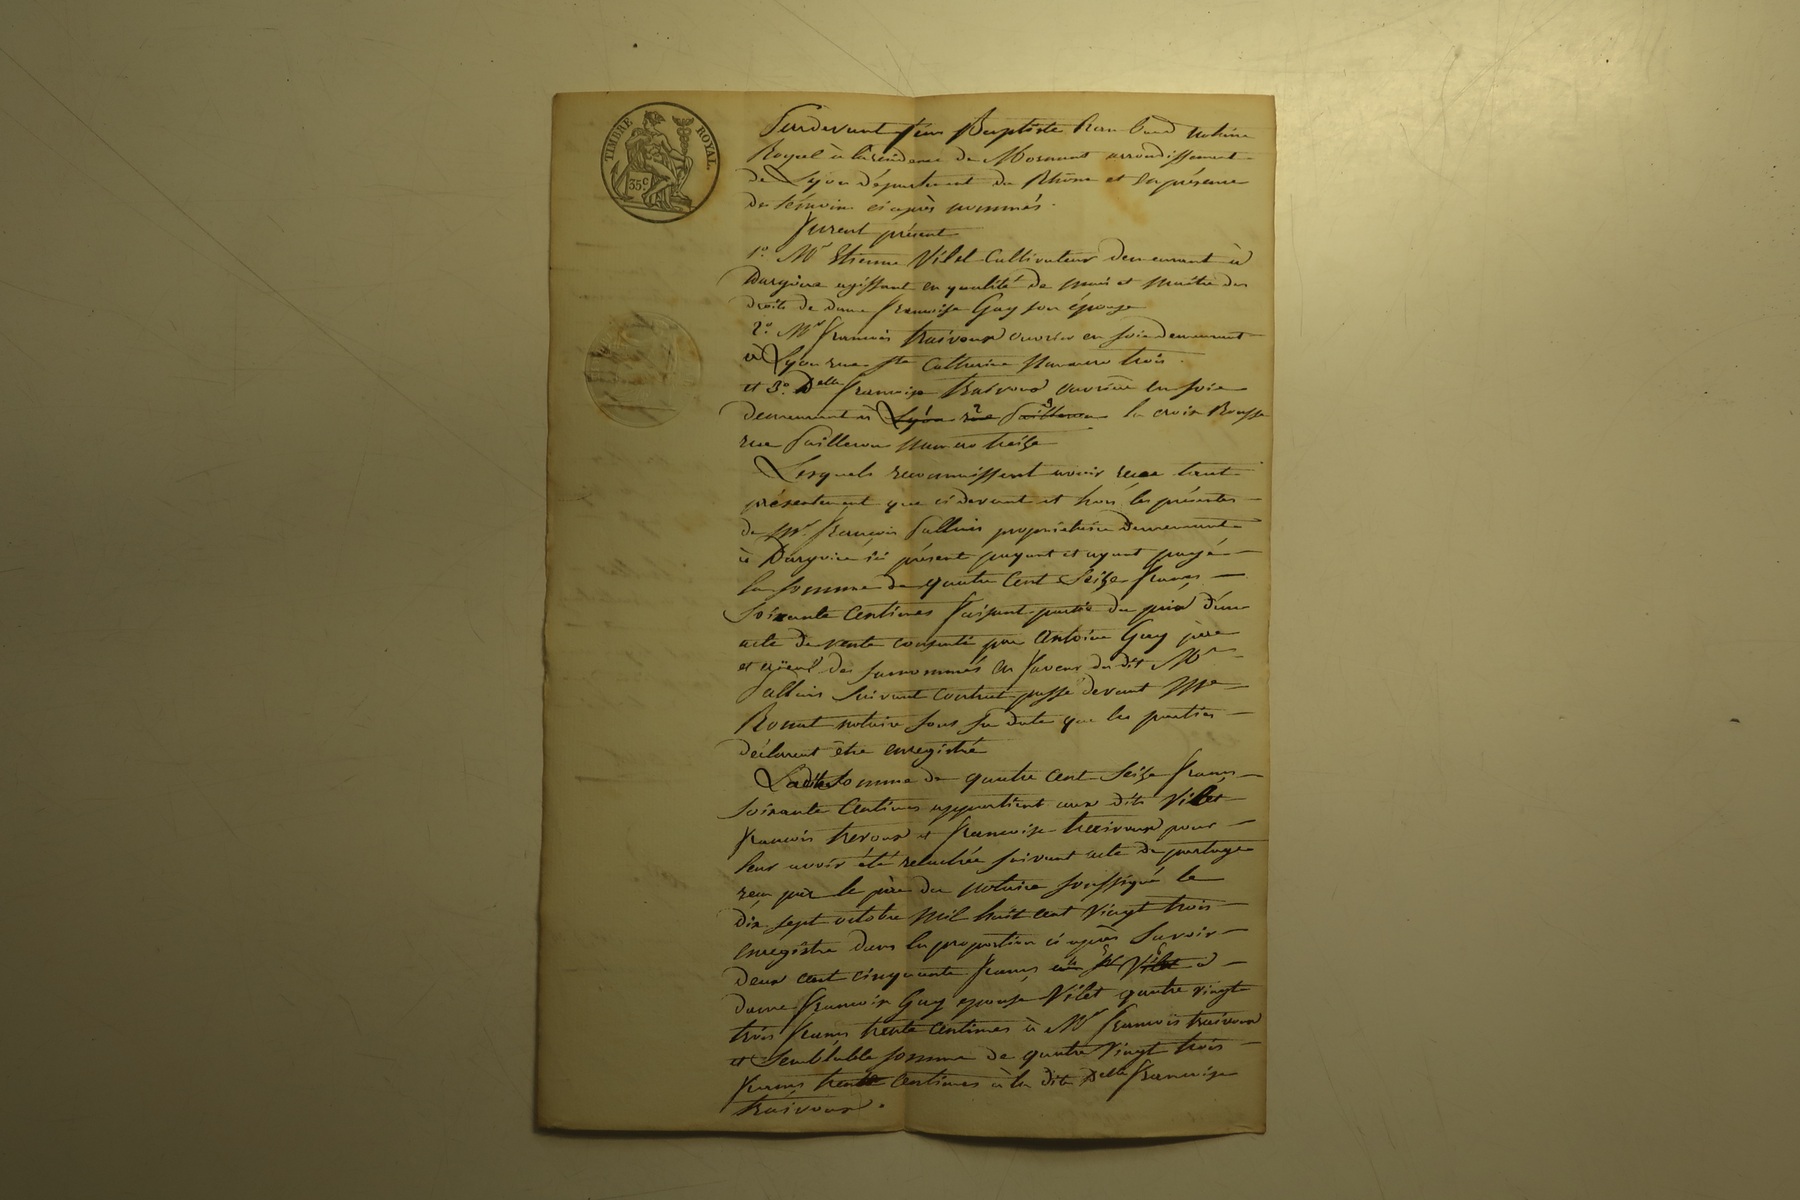 TIMBRE ROYAL
35c
Pardevant Jean Baptiste notaire
Royal à la résidence de Mornant arrondissement
de Lyon département du Rhône et en présence
de témoins ci après nommés.
furent présent
1º. Mr Etienne Vilet Cultivateur demeurant à
Dargoire agissant en qualité de mari et maître des
droits de dame françoise Gay son épouse
2º. Mr francois traivoux ouvrier en soie demeurant
à Lyon rue Ste Catherine Numero trois.
et 3º. Delle francoise traivoux ouvrière en soie
demeurant à Lyon rüe la croix Rousse
rue numero treize
Lesquels reconnaissent avoir recu tant
présentement que cidevant et hors les présentes
de Mr. françois propriétaire demeurant
à Dargoire ici présent payant et ayant payé
la somme de quatre Cent Seize francs
Soixante Centimes faisant partie du prix d'un
acte de vente consenti par Antoine Gay père
et ayeul des surnommés en faveur du dit Mr
suivant contrat passé devant Me
notaire sous sa date que les parties
déclarent être enregistré
Ladite somme de quatre cent Seize francs
Soixante Centimes appartient aux dits Vilet
francois trevoux et francoise traivoux pour
leur avoir été relachée suivant acte de partage
reçu par le père du notaire soussigné le
dix sept octobre mil huit cent vingt trois
enregistré dans la proportion ci après Savoir
deux cent cinquante francs Vilet à
dame francoise Gay epouse Vilet quatre vingt
trois francs trente centimes à Mr francois traivoux
et Semblable somme de quatre vingt trois
francs trente centimes à la dite Delle francoise
traivoux.